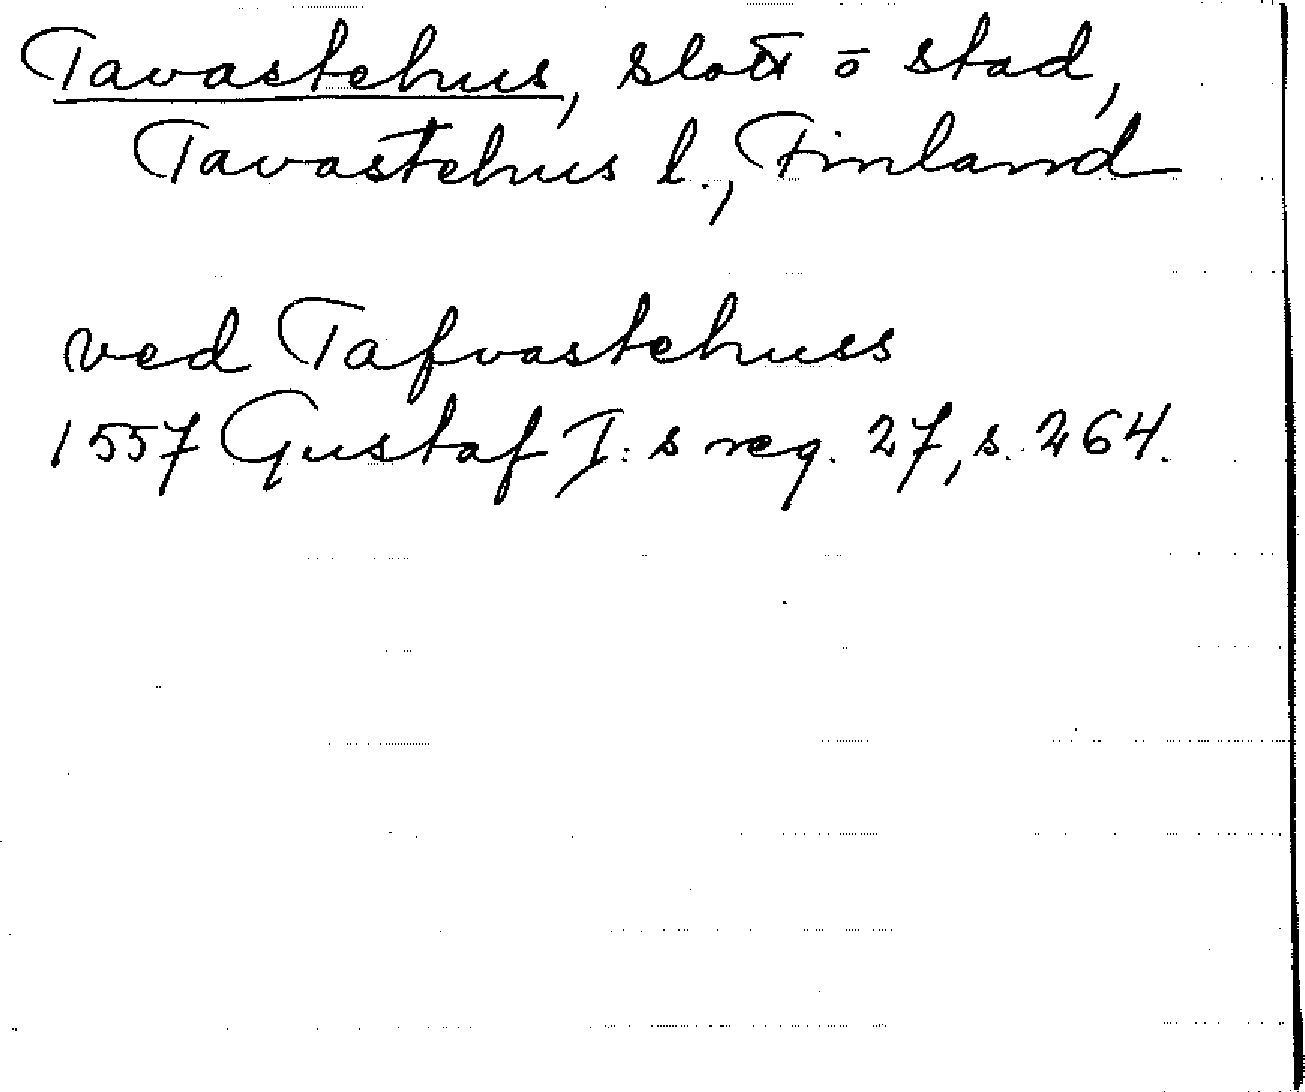 Tavastehus, slott o stad,
Tavastehus l., Finland
ved Tafvastehuss
1557 Gustaf I:s reg. 27, s. 264.